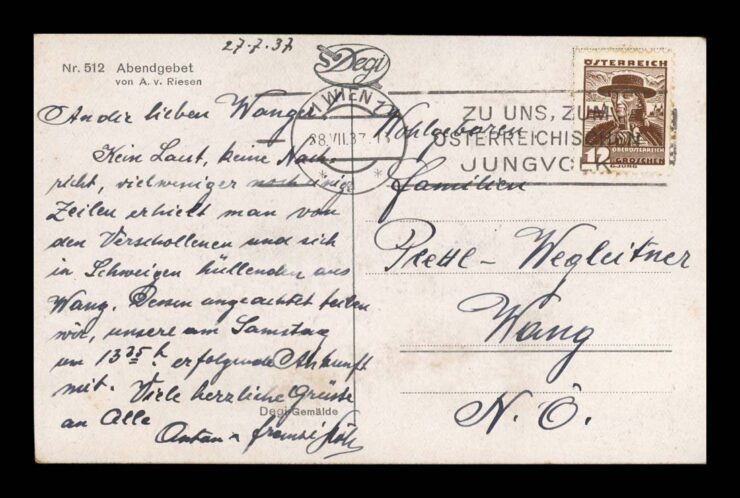 27.7.37
Nr. 512 Abendgebet
von A. v. Riesen
Degi
An die lieben Wanger
Kein Laut, keine Nach-
richt, viel weniger noch einige
Zeilen erhielt man von
den Verschollenen und sich
in Schweigen hüllenden aus
Wang. Dessen ungeachtet teilen
wir, unsere am Samstag
um 13 25 h. erfolgende Ankunft
mit. Viele herzliche Grüsse
an Alle
Degi-Gemälde
1 WIEN 1
28.VII.37
ZU UNS, ZUM
ÖSTERREICHISCHEN
JUNGVOLK
ÖSTERREICH
OBERÖSTERREICH
12 GROSCHEN
Wohlgeboren
Familien
Prettl - Wegleitner
Wang
N. Ö.